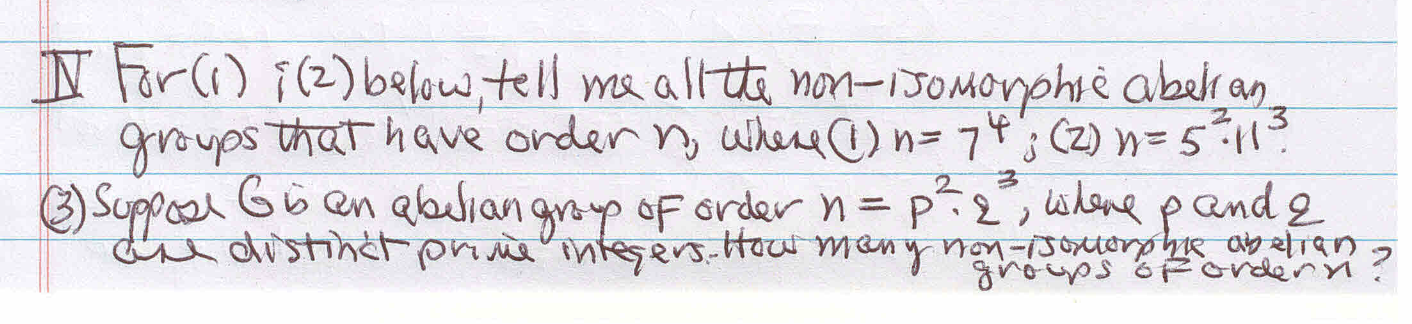 IV For (1) ; (2) below, tell me all the non-isomorphic abelian
groups that have order n, where (1) n = 7⁴ ; (2) n = 5²·11³.
(3) Suppose G is an abelian group of order n = p²·q³, where p and q
are distinct prime integers. How many non-isomorphic abelian
groups of order n ?